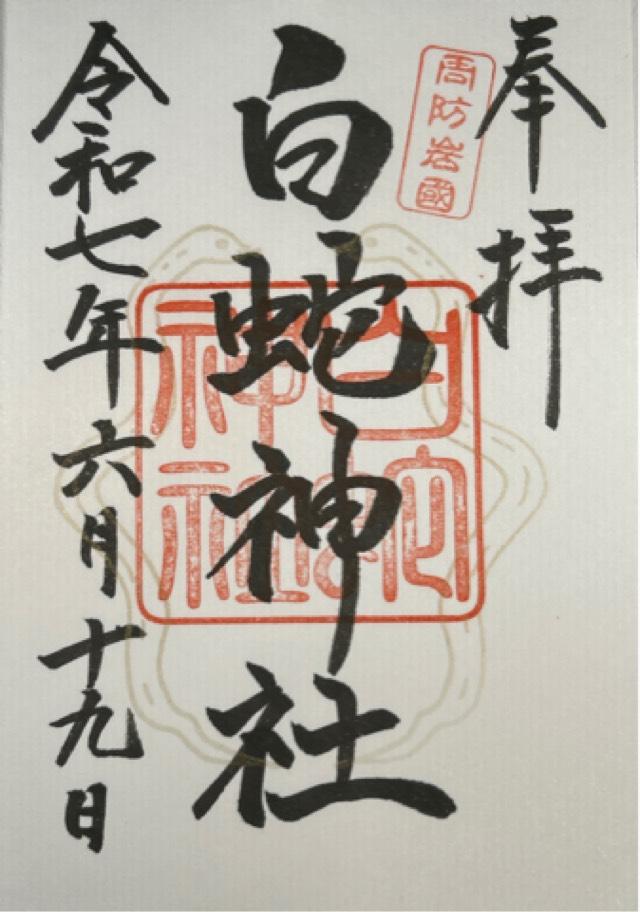 奉拝
周防岩國
白蛇神社
白蛇神社
令和七年六月十九日